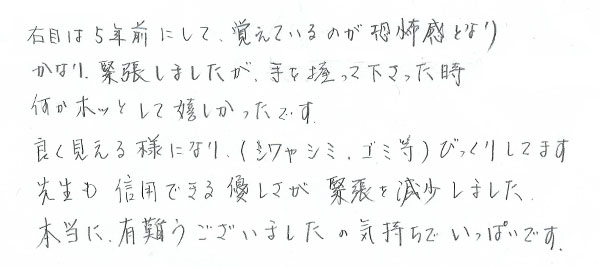 右目は5年前にして、覚えているのが恐怖感となり
かなり、緊張しましたが、手を握って下さった時
何かホッとして嬉しかったです。
良く見える様になり、(シワやシミ、ゴミ等)びっくりしてます
先生も信用できる優しさが緊張を減少しました。
本当に、有難うございましたの気持ちでいっぱいです。